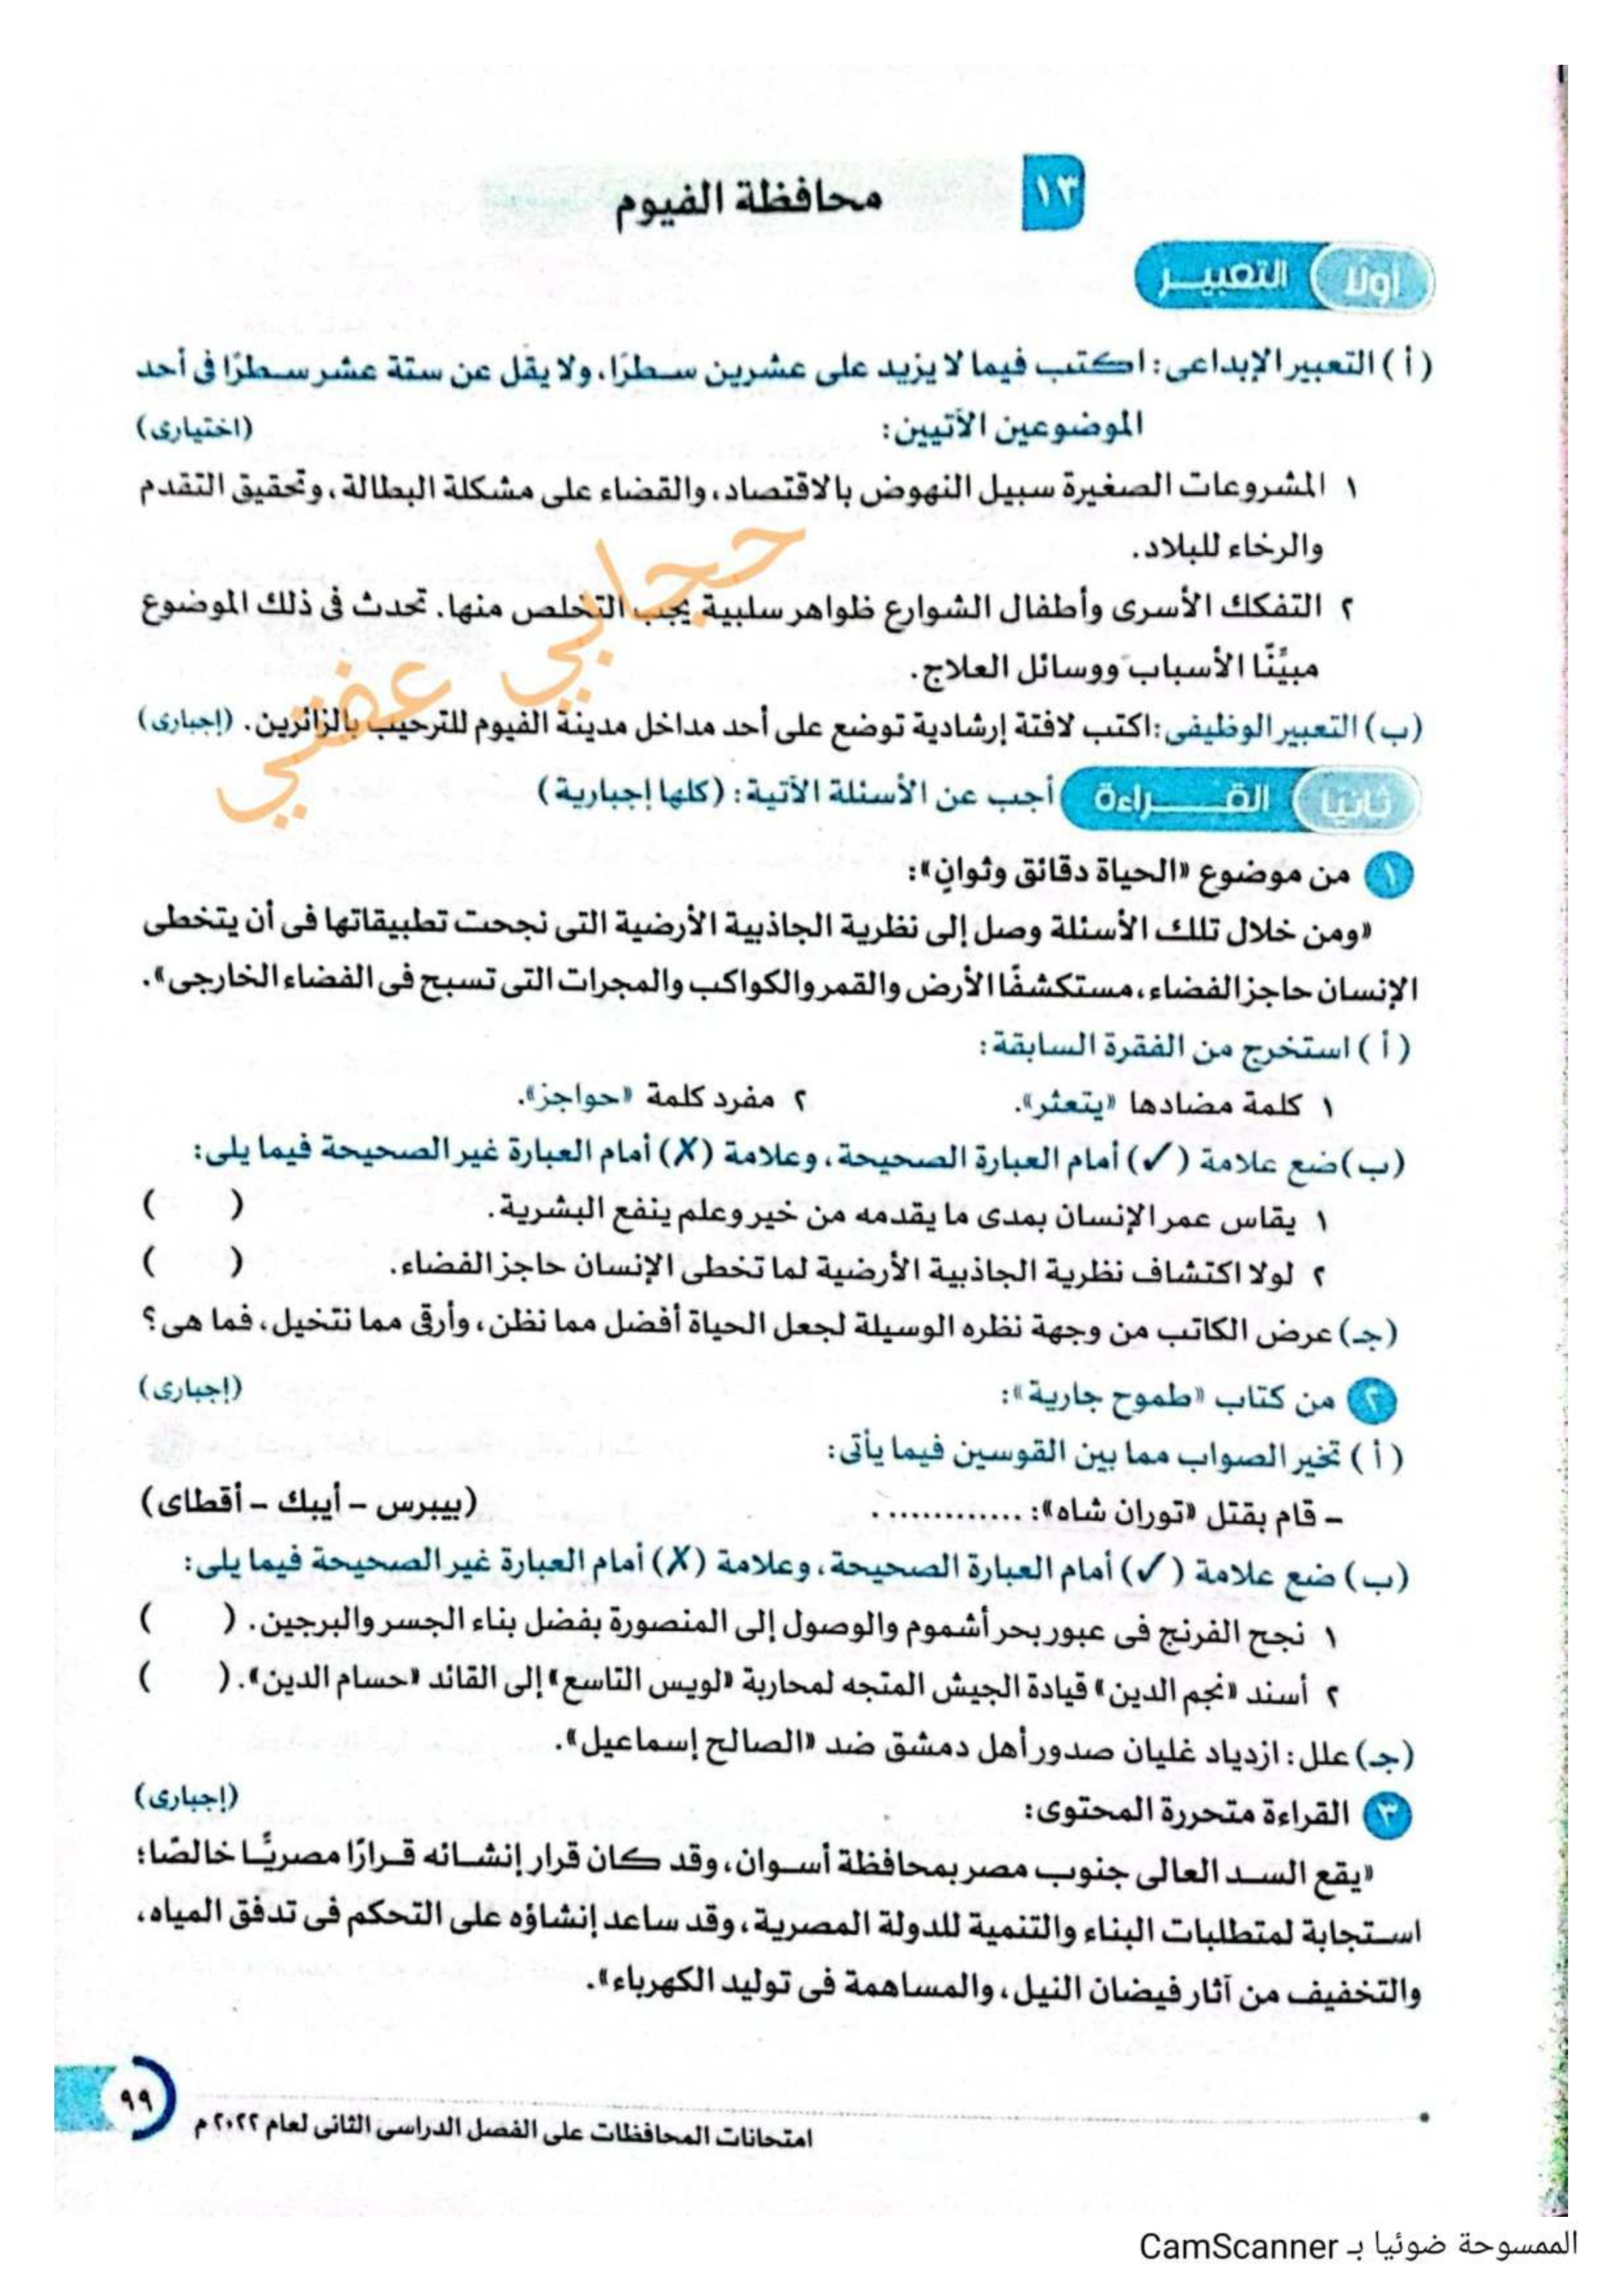 ١٣ محافظة الفيوم
أولًا التعبير
( أ ) التعبير الإبداعى: اكتب فيما لا يزيد على عشرين سطرًا، ولا يقل عن ستة عشر سطرًا فى أحد
الموضوعين الآتيين: (اختيارى)
١ المشروعات الصغيرة سبيل النهوض بالاقتصاد، والقضاء على مشكلة البطالة، وتحقيق التقدم
والرخاء للبلاد.
٢ التفكك الأسرى وأطفال الشوارع ظواهر سلبية يجب التخلص منها. تحدث فى ذلك الموضوع
مبيِّنًا الأسباب ووسائل العلاج.
(ب) التعبير الوظيفى: اكتب لافتة إرشادية توضع على أحد مداخل مدينة الفيوم للترحيب بالزائرين. (إجبارى)
حجابي عفتي
ثانيًا القراءة أجب عن الأسئلة الآتية: (كلها إجبارية)
١ من موضوع «الحياة دقائق وثوانٍ»:
«ومن خلال تلك الأسئلة وصل إلى نظرية الجاذبية الأرضية التى نجحت تطبيقاتها فى أن يتخطى
الإنسان حاجز الفضاء، مستكشفًا الأرض والقمر والكواكب والمجرات التى تسبح فى الفضاء الخارجى».
( أ ) استخرج من الفقرة السابقة:
١ كلمة مضادها «يتعثر». ٢ مفرد كلمة «حواجز».
(ب) ضع علامة (✓) أمام العبارة الصحيحة، وعلامة (✗) أمام العبارة غير الصحيحة فيما يلى:
١ يقاس عمر الإنسان بمدى ما يقدمه من خير وعلم ينفع البشرية. ( )
٢ لولا اكتشاف نظرية الجاذبية الأرضية لما تخطى الإنسان حاجز الفضاء. ( )
(جـ) عرض الكاتب من وجهة نظره الوسيلة لجعل الحياة أفضل مما نظن، وأرقى مما نتخيل، فما هى؟
٢ من كتاب «طموح جارية»: (إجبارى)
( أ ) تخير الصواب مما بين القوسين فيما يأتى:
– قام بقتل «توران شاه»: ............. . (بيبرس – أيبك – أقطاى)
(ب) ضع علامة (✓) أمام العبارة الصحيحة، وعلامة (✗) أمام العبارة غير الصحيحة فيما يلى:
١ نجح الفرنج فى عبور بحر أشموم والوصول إلى المنصورة بفضل بناء الجسر والبرجين. ( )
٢ أسند «نجم الدين» قيادة الجيش المتجه لمحاربة «لويس التاسع» إلى القائد «حسام الدين». ( )
(جـ) علل: ازدياد غليان صدور أهل دمشق ضد «الصالح إسماعيل».
٣ القراءة متحررة المحتوى: (إجبارى)
«يقع السد العالى جنوب مصر بمحافظة أسوان، وقد كان قرار إنشائه قرارًا مصريًّا خالصًا؛
استجابة لمتطلبات البناء والتنمية للدولة المصرية، وقد ساعد إنشاؤه على التحكم فى تدفق المياه،
والتخفيف من آثار فيضان النيل، والمساهمة فى توليد الكهرباء».
امتحانات المحافظات على الفصل الدراسى الثانى لعام ٢٠٢٢ م ٩٩
الممسوحة ضوئيا بـ CamScanner